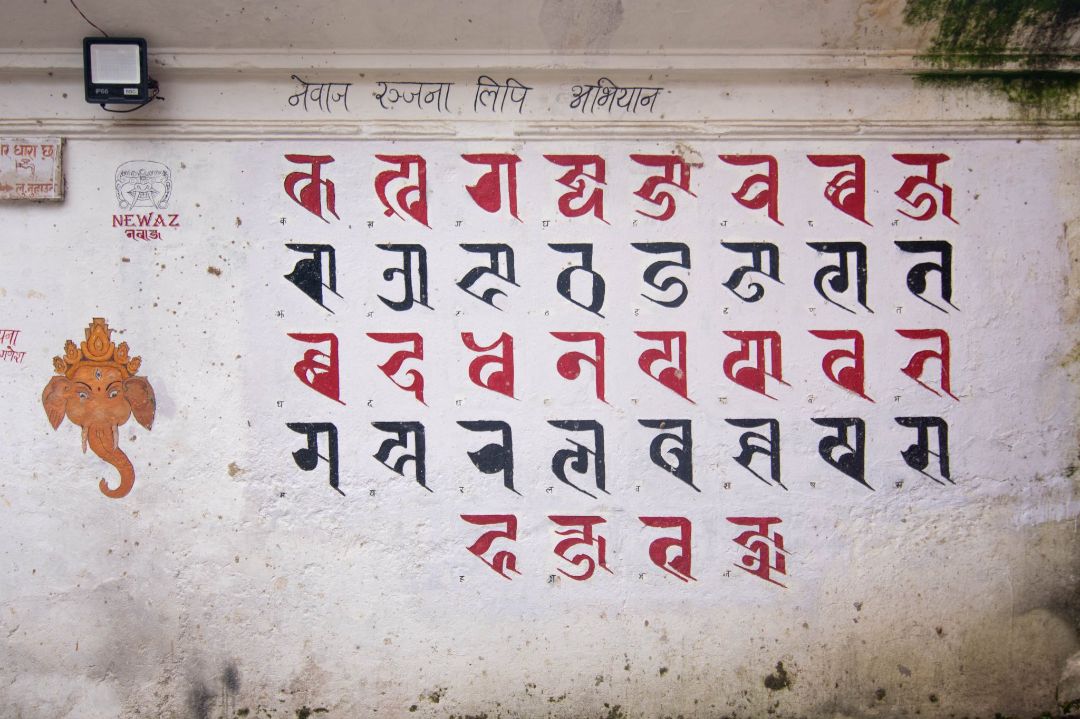 IP66
नेवाज रञ्जना लिपि अभियान
धारा
NEWAZ
क ख ग घ ङ च छ ज
झ ञ ट ठ ड ढ ण त
थ द ध न प फ ब भ
म य र ल व श ष स
ह क्ष त्र ज्ञ